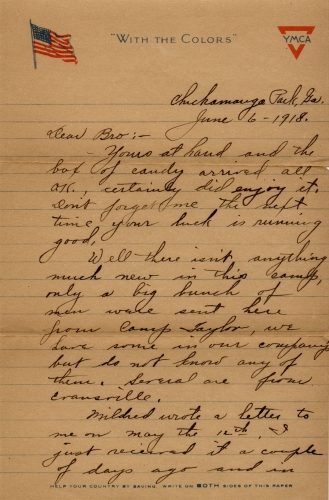 "WITH THE COLORS"
YMCA
Chickamauga Park, Ga.
June 6 - 1918.
Dear Bro:-
Yours at hand and the
box of candy arrived all
OK., certainly did enjoy it,
Don't forget me the next
time your luck is running
good.
Well there isn't anything
much new in this camp,
only a big bunch of
men were sent here
from Camp Taylor, we
have some in our company
but do not know any of
them. Several are from
Evansville.
Mildred wrote a letter to
me on May the 12th. I
just received it a couple
of days ago and in
HELP YOUR COUNTRY BY SAVING. WRITE ON BOTH SIDES OF THIS PAPER